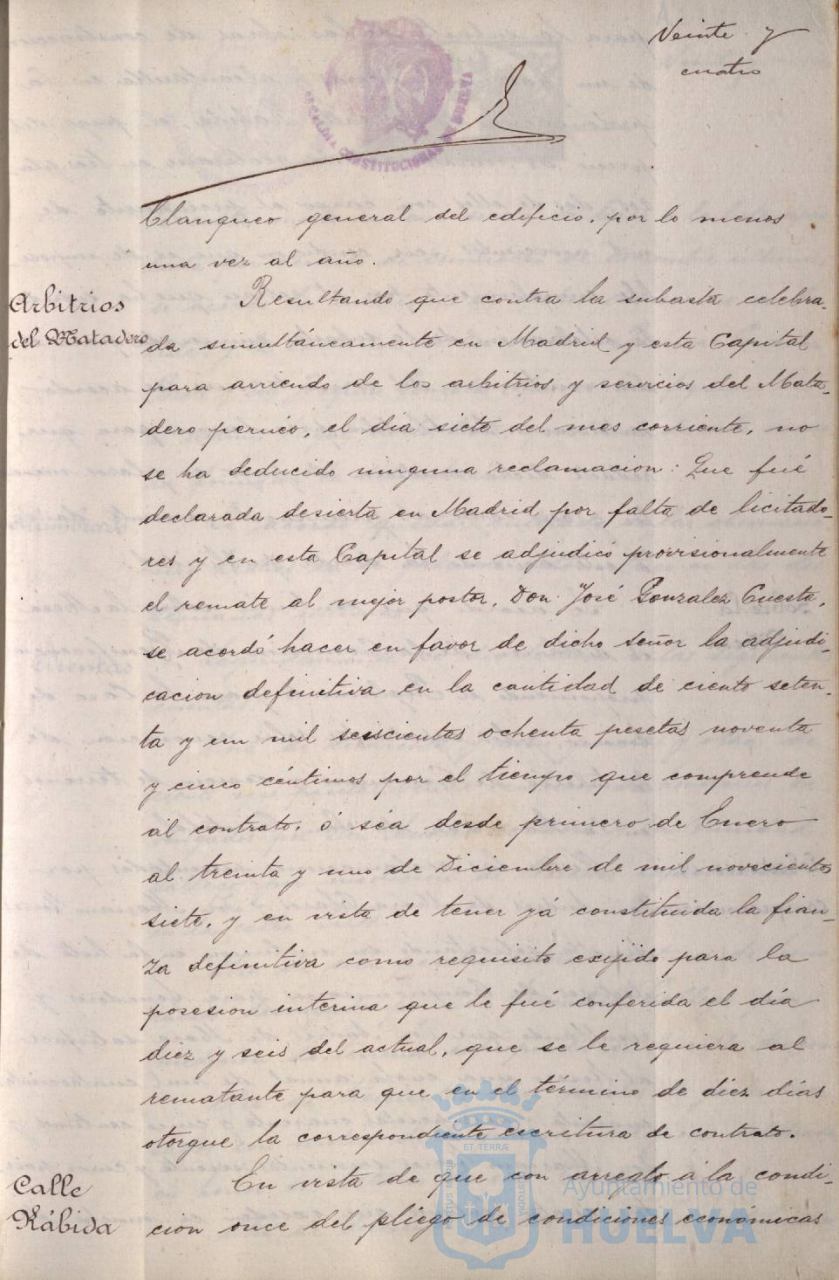 Veinte y
cuatro
ALCALDIA CONSTITUCIONAL DE HUELVA
blanqueo general del edificio, por lo menos
una vez al año.
Arbitrios
del Matadero
Resultando que contra la subasta celebra-
da simultáneamente en Madrid y esta Capital
para arriendo de los arbitrios y servicios del Mata-
dero perneo, el dia siete del mes corriente, no
se ha deducido ninguna reclamacion: Que fué
declarada desierta en Madrid por falta de licitado-
res y en esta Capital se adjudicó provisionalmente
el remate al mejor postor, Don José Gonzalez Cuesta,
se acordó hacer en favor de dicho señor la adjudi-
cacion definitiva en la cantidad de ciento seten-
ta y un mil seiscientas ochenta pesetas noventa
y cinco céntimos por el tiempo que comprende
al contrato, ó sea desde primero de Enero
al treinta y uno de Diciembre de mil novecientos
siete, y en vista de tener yá constituida la fian-
za definitiva como requisito exijido para la
posesion interina que le fué conferida el día
diez y seis del actual, que se le requiera al
rematante para que en el término de diez días
otorgue la correspondiente escritura de contrato.
Calle
Rábida
En vista de que con arreglo á la condi-
cion once del pliego de condiciones económicas
Ayuntamiento de
HUELVA